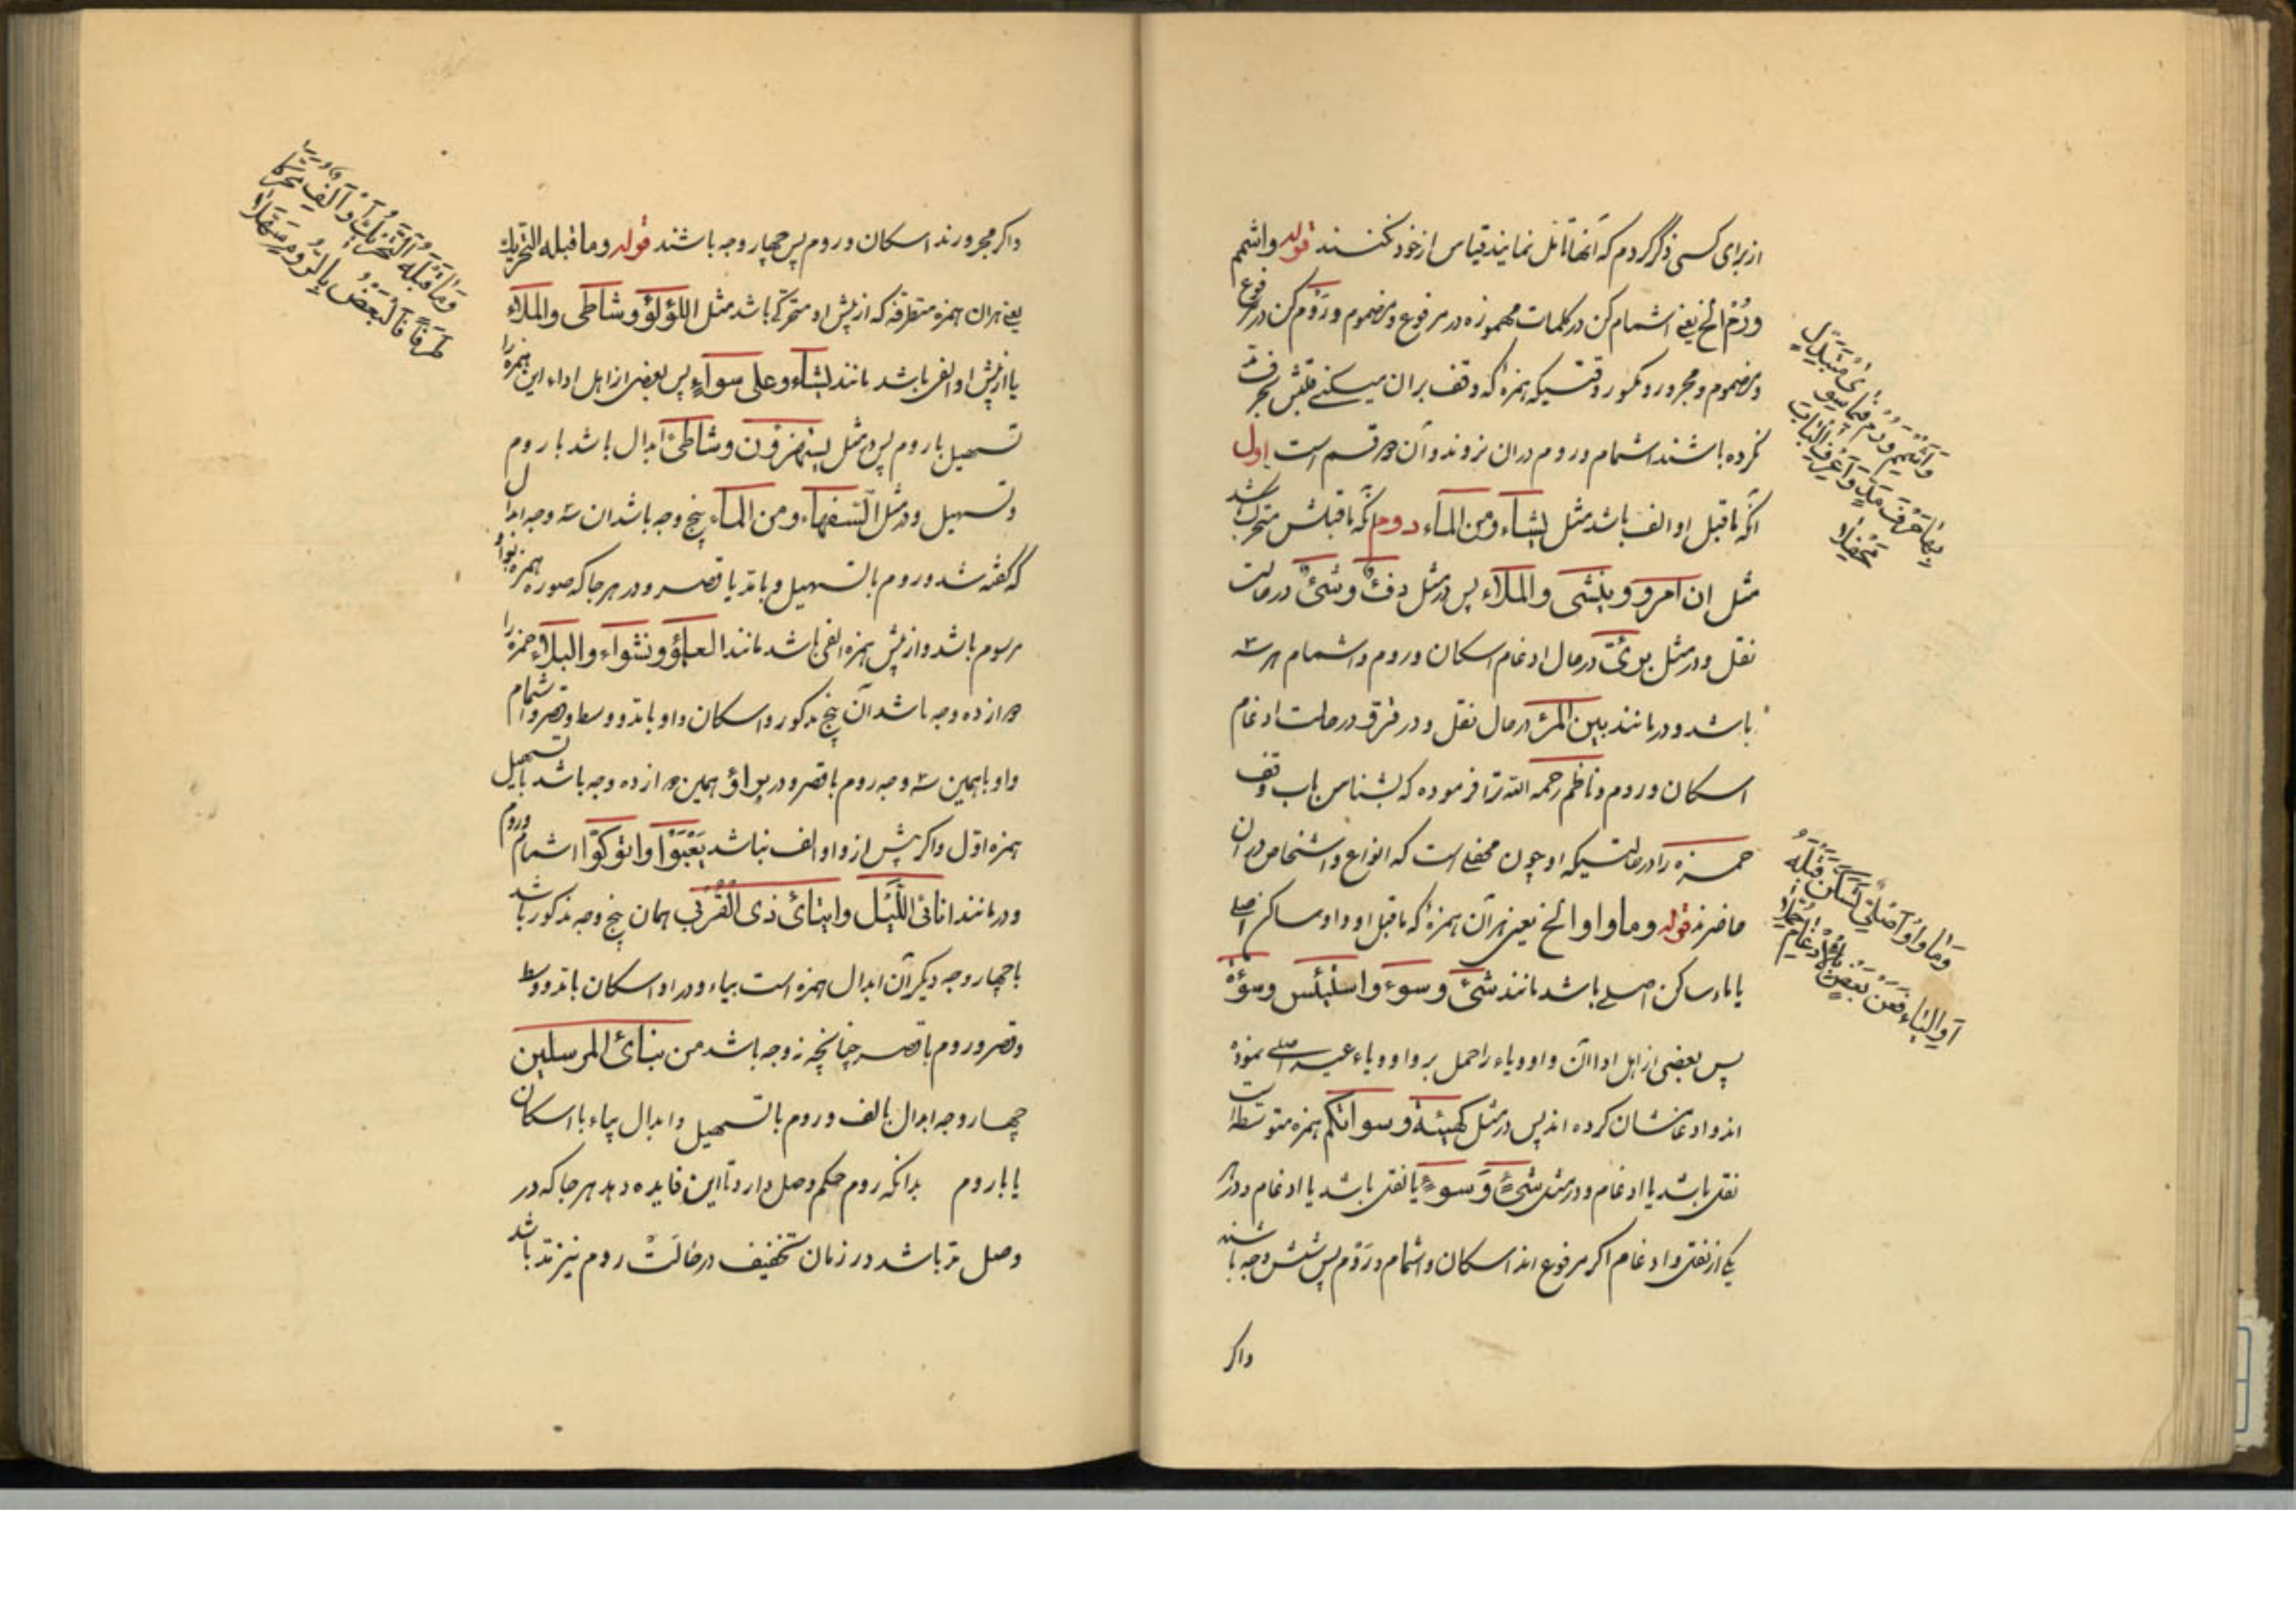 از برای کسی ذکر کردم که آنها تأمل نمایند قیاس از خود کنند قوله واشمم
ورُمْ الخ یعنی اشمام کن در کلمات مهموزه در مرفوع و مضموم و رَوْم کن در مرفوع
و مضموم و مجرور و مکسور وقتیکه همزهٔ که وقف بران میکنی
نکرده باشند اشمام و روم دران نروند و آن دو قسم است اول
آنکه ماقبل او الف باشد مثل یشاء ومن الماء دوم آنکه ماقبلش متحرک باشد
مثل ان امرو وینشی والملاء پس در مثل دفء وشئ در حالت
نقل و در مثل برئ در حال ادغام اسکان و روم و اشمام هر سه
باشد و در مانند بین المرء در حال نقل و در قرؤ در حالت ادغام
اسکان و روم و ناظم رحمه الله ترا فرموده که بشناس باب وقف
حمزه را در حالتیکه او چون محفلی است که انواع و اشخاص در آن
حاضرند قوله وما واو الخ یعنی هر آن همزهٔ که ماقبل او واو ساکن اصلی
یا یاء ساکن اصلی باشد مانند شئ وسوء واستیئس وسوءة
پس بعضی از اهل ادا آن واو و یاء را حمل بر واو و یاء غیر اصلی نموده
اند و ادغامشان کرده اند پس در مثل کهیئة وسواتکم همزه متوسطه است
نقل باشد یا ادغام و در مثل شئ وسوء یا نقل باشد یا ادغام و در هر
یکی از نقل و ادغام اکر مرفوع اند اسکان و اشمام و رَوْم پس شش وجه باشند
واکر
وَأَشْمِمْ وَرُمْ فِيمَا سِوَى مُتَبَدِّلٍ
بِهَا حَرْفَ مَدٍّ وَاعْرِفِ الْبَابَ
مَحْفِلَا
وَمَا وَاوٌ أَصْلِيٌّ تَسَكَّنَ قَبْلَهُ
أَوِ الْيَاء فَعَنْ بَعْضٍ بِالْإِدْغَامِ حُمِّلَا
واکر مجرورند اسکان و روم پس چهار وجه باشند قوله وما قبله التحریک
یعنی هران همزه متطرفه که از پیش او متحرکی باشد مثل اللؤلؤ وشاطئ والملاء
یا از پیش او الف باشد مانند یشاء وعلی سواء پس بعضی از اهل اداء این همزه را
تسهیل با روم پس در مثل یستهزؤن وشاطئ ابدال باشد با روم
و تسهیل و در مثل السفهاء ومن الماء پنج وجه باشد ان سه وجه ابدال
که گفته شد و روم با تسهیل و با مد یا قصر و در هر جا که صوره همزه بواو
مرسوم باشد و از پیش همزه الفی باشد مانند العلمؤ ونشواء والبلاء حمزه را
دوازده وجه باشد آن پنج مذکور و اسکان واو با مد و وسط و قصر و اشمام
واو با همین سه وجه و روم با قصر و در براؤ همین دوازده وجه باشد با تسهیل
همزه اول واکر پیش از واو الف نباشد یَعْبَؤا واتوکؤا اشمام و روم
و در مانند اناء الیل وایتائ ذی القربی همان پنج وجه مذکور باشد
با چهار وجه دیکر آن ابدال همزه است بیاء و در او اسکان با مد و وسط
و قصر و روم با قصر چنانچه نه وجه باشد من نبائ المرسلین
چهار وجه ابدال بالف و روم با تسهیل و ابدال بیاء با اسکان
یا با روم بدانکه روم حکم وصل دارد تا این فایده دهد هر جا که در
وصل مد باشد در زمان تخفیف در حالت روم نیز مد باشد
وَمَا قَبْلَهُ التَّحْرِيكُ أَوْ أَلِفٌ مُحَرَّكًا
طَرَفًا فَالْبَعْضُ بِالرَّوْمِ سَهَّلَا